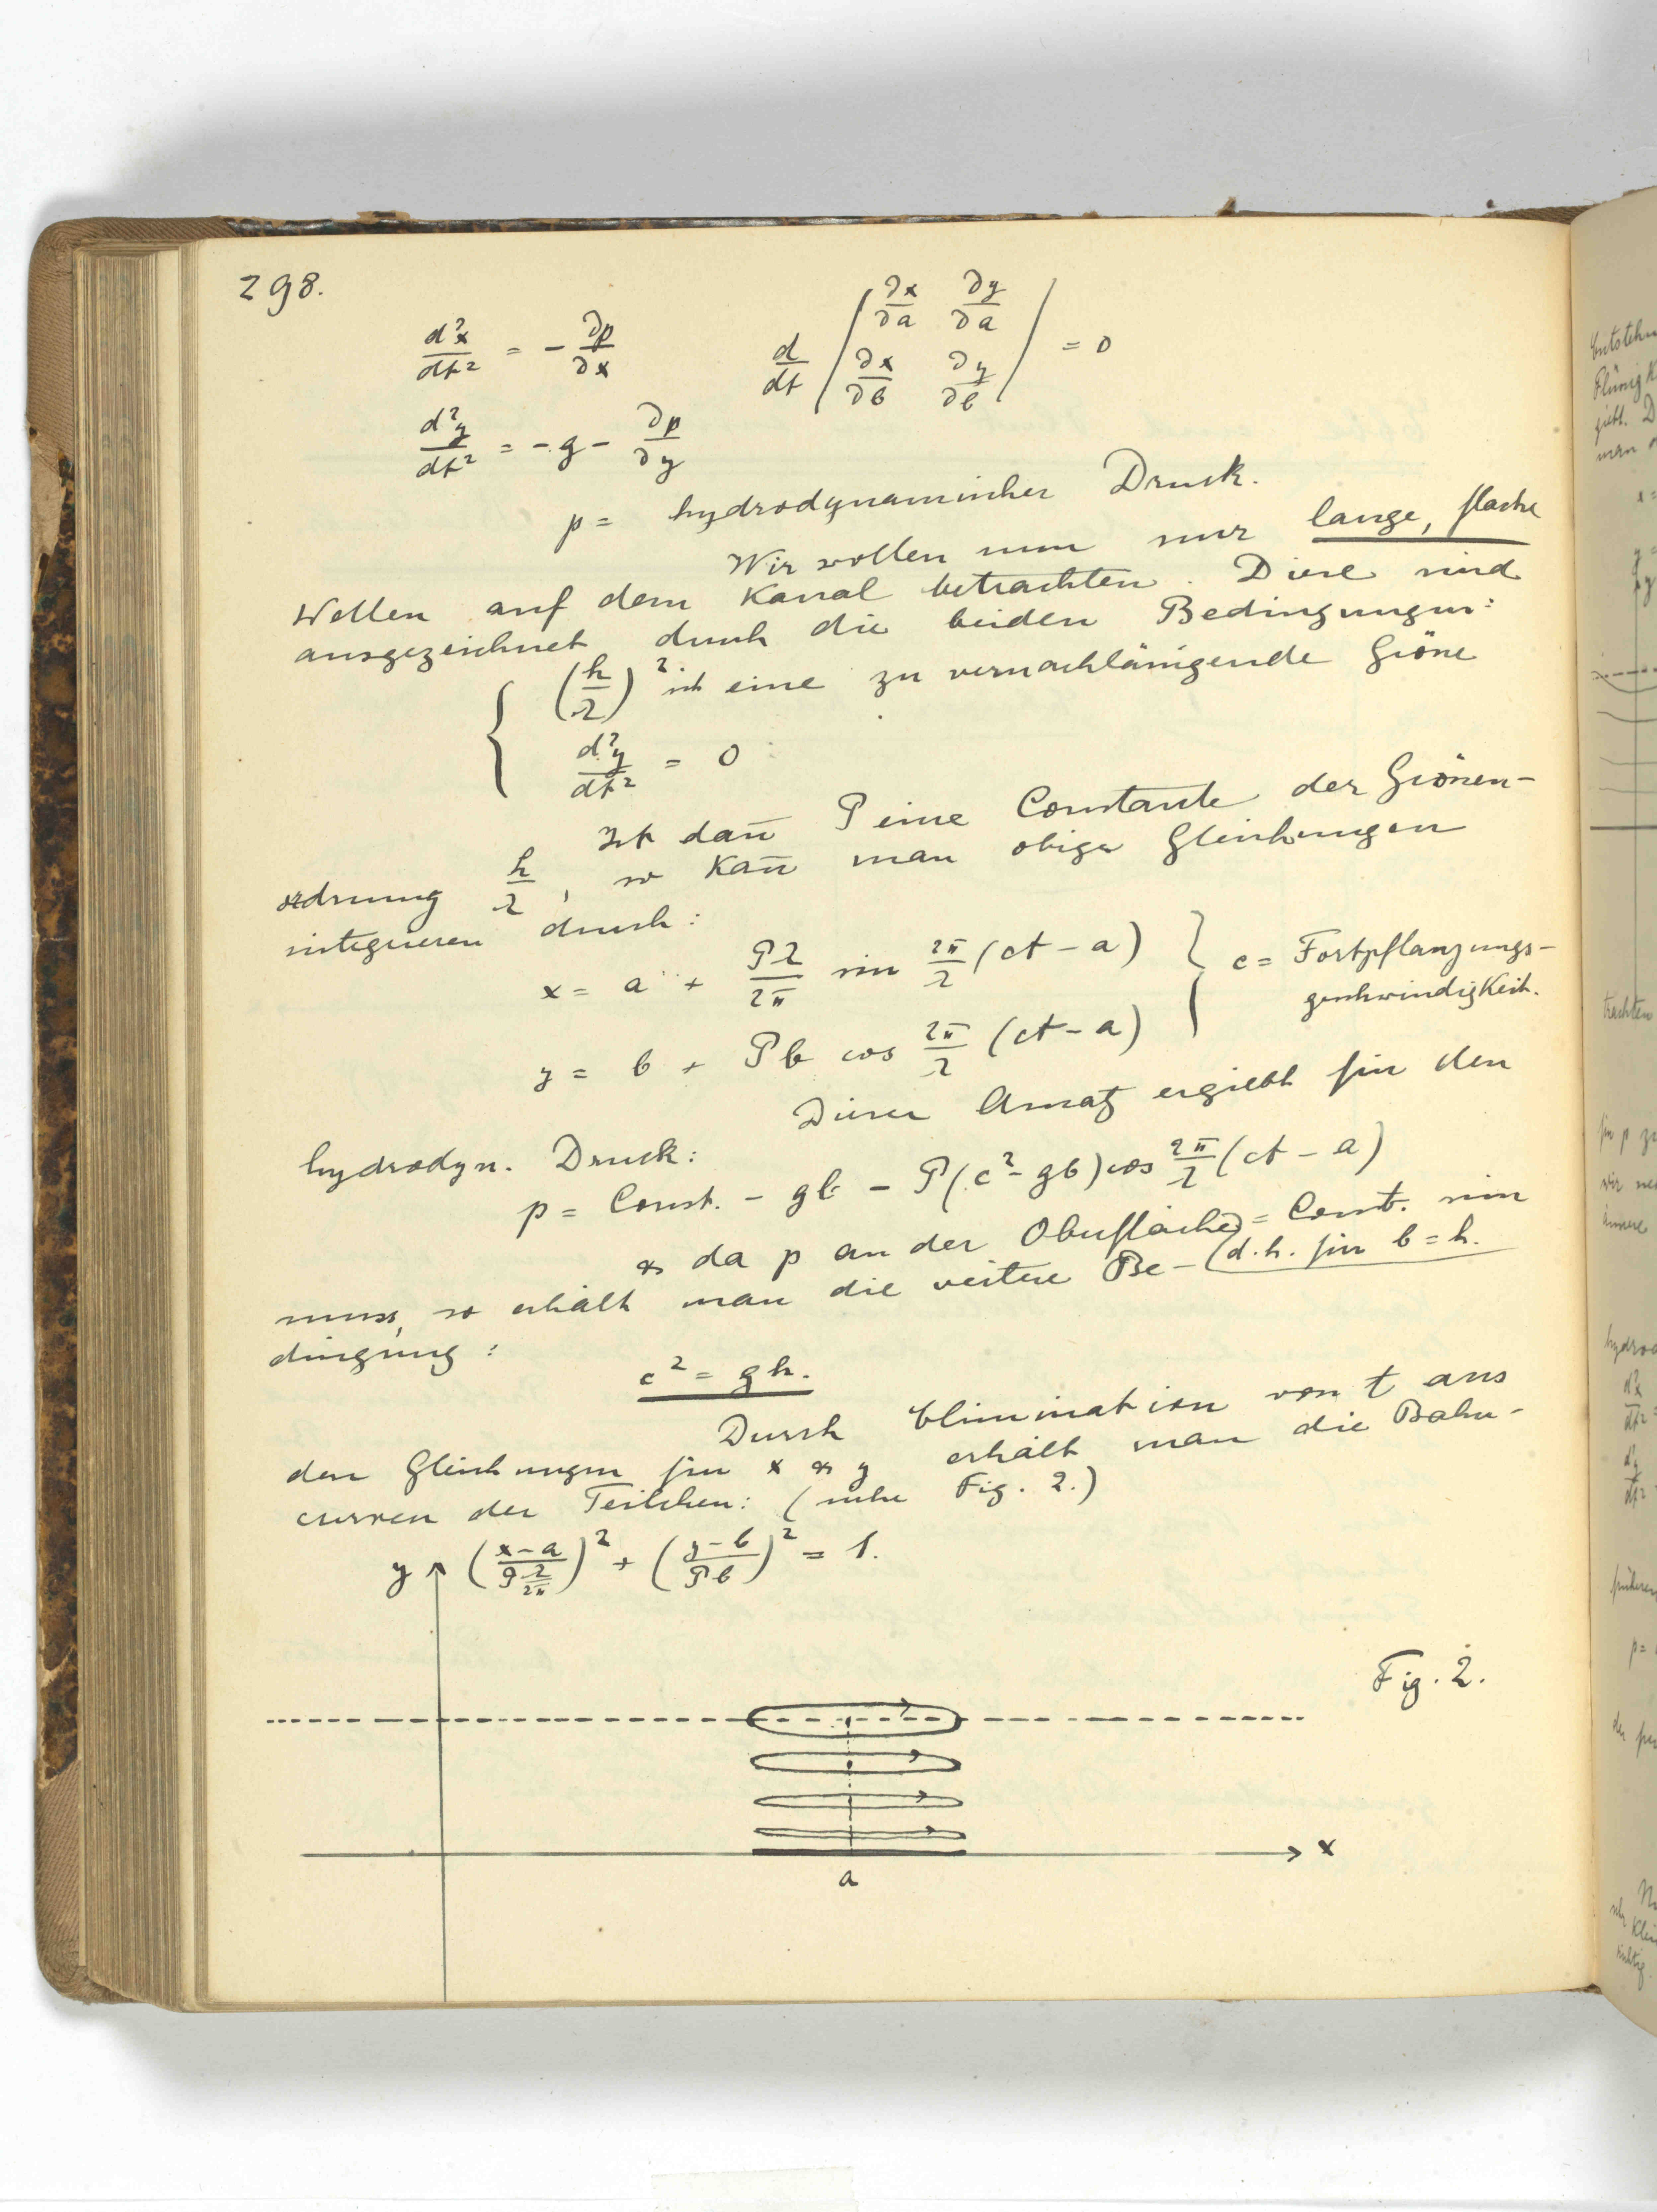 298.
d²x/dt² = - ∂p/∂x    d/dt | ∂x/∂a ∂y/∂a ; ∂x/∂b ∂y/∂b | = 0
d²y/dt² = - g - ∂p/∂y
p = hydrodynamischer Druck.
Wir wollen nun nur lange, flache
Wellen auf dem Kanal betrachten. Diese sind
ausgezeichnet durch die beiden Bedingungen:
(h/λ)² ist eine zu vernachlässigende Grösse
d²y/dt² = 0
Ist dañ P eine Constante der Grössen-
ordnung h/λ, so kañ man obige Gleichungen
integrieren durch:
x = a + Pλ/2π sin 2π/λ (ct - a) } c = Fortpflanzungs-
geschwindigkeit.
y = b + Pb cos 2π/λ (ct - a)
Dieser Ansatz ergiebt für den
hydrodyn. Druck:
p = Const. - gb - P(c² - gb) cos 2π/λ (ct - a)
& da p an der Oberfläche = Const. sein
(d.h. für b = h.
muss, so erhält man die weitere Be-
dingung:
c² = gh.
Durch Elimination von t aus
den Gleichungen für x & y erhält man die Bahn-
curven der Teilchen: (siehe Fig. 2.)
y ((x-a)/(P λ/2π))² + ((y-b)/(Pb))² = 1.
Fig. 2.
x
a